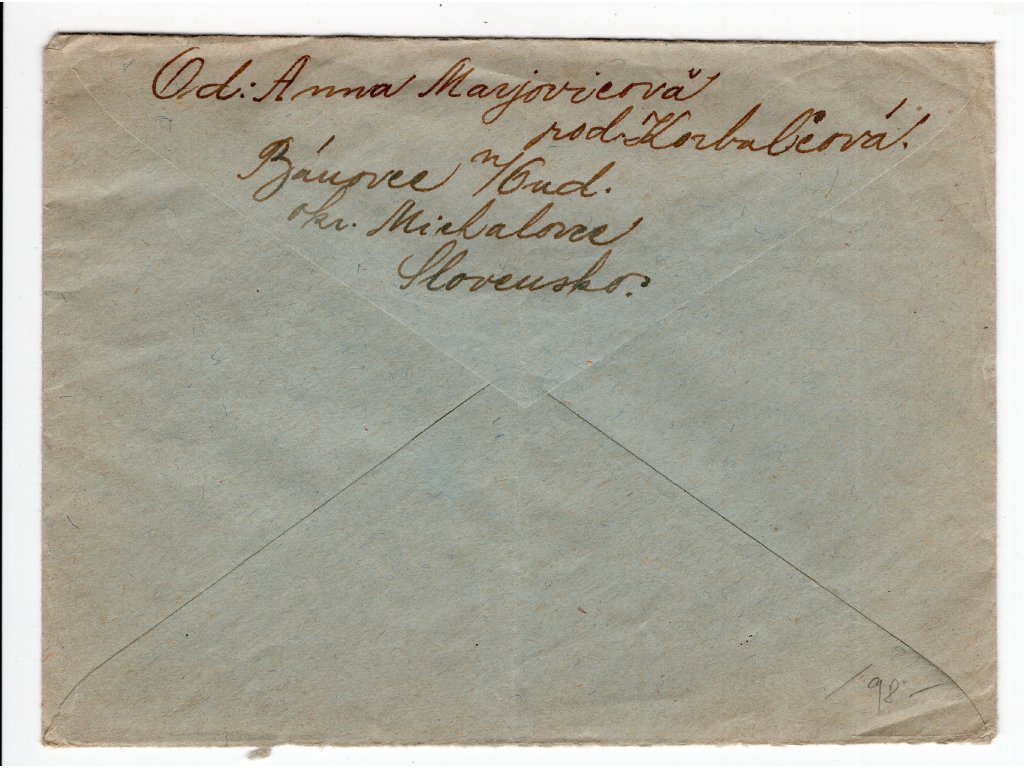 Od: Anna Marjovicová
rod. Korbalčová.
Bánovce n/Ond.
okr. Michalovce
Slovensko.
/98.-